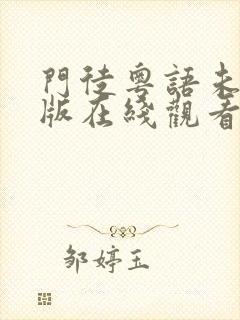 門徒粵語未
版在綫觀看
邹婷玉